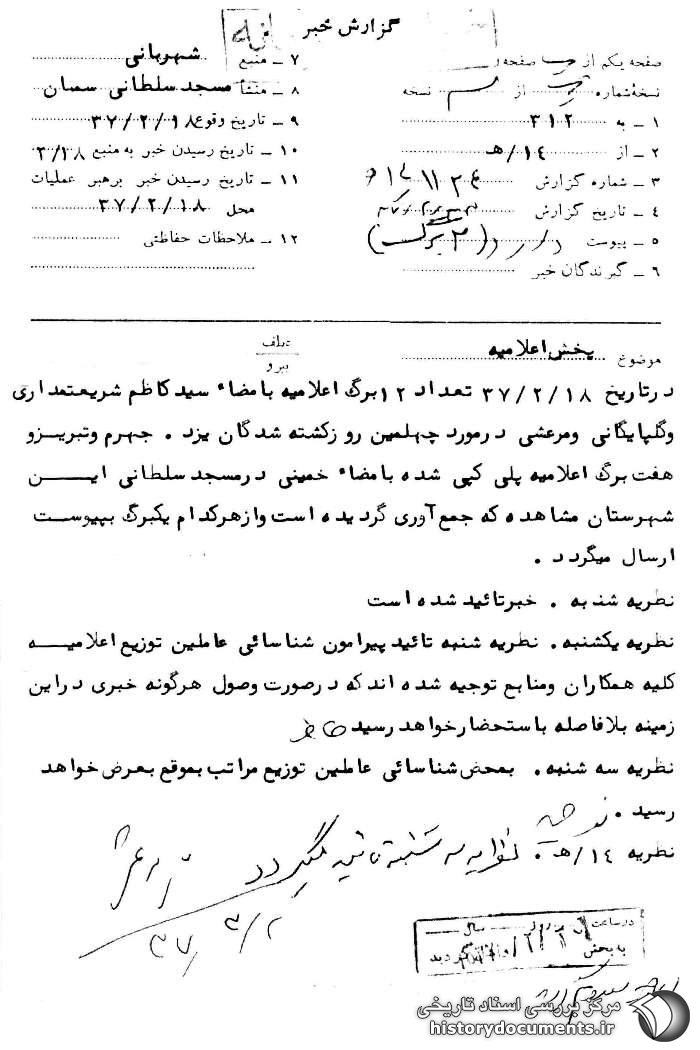 گزارش خبر
صفحه یکم از صفحه
نسخه شماره از نسخه
۱ ـ به ۳۱۲
۲ ـ از ۱۴/هـ
۳ ـ شماره گزارش
۴ ـ تاریخ گزارش
۵ ـ پیوست دارد (۲ برگ)
۶ ـ گیرندگان خبر
۷ ـ منبع شهربانی
۸ ـ منشأ مسجد سلطانی سمنان
۹ ـ تاریخ وقوع ۳۷/۲/۱۸
۱۰ ـ تاریخ رسیدن خبر به منبع
۱۱ ـ تاریخ رسیدن خبر برهبر عملیات
محل ۳۷/۲/۱۸
۱۲ ـ ملاحظات حفاظتی
موضوع پخش اعلامیه
درتاریخ ۳۷/۲/۱۸ تعداد ۱۲برگ اعلامیه بامضاء سیدکاظم شریعتمداری
وگلپایگانی ومرعشی درمورد چهلمین روزکشته شدگان یزد . جهرم وتبریزو
هفت برگ اعلامیه پلی کپی شده بامضاء خمینی درمسجد سلطانی ایـــن
شهرستان مشاهده که جمع آوری گردیده است وازهرکدام یکبرگ بپیوست
ارسال میگردد .
نظریه شنبه . خبرتائید شده است
نظریه یکشنبه. نظریه شنبه تائید پیرامون شناسائی عاملین توزیع اعلامیـــه
کلیه همکاران ومنابع توجیه شده اند که درصورت وصول هرگونه خبری دراین
زمینه بلافاصله باستحضارخواهد رسید
نظریه سه شنبه. بمحض شناسائی عاملین توزیع مراتب بموقع بعرض خواهد
رسید .
نظریه ۱۴/هـ. نظریه سه شنبه تائید میگردد
۳۷/۳/۲
در ساعت
سال
به بخش گردید
مرکز بررسی اسناد تاریخی
historydocuments.ir